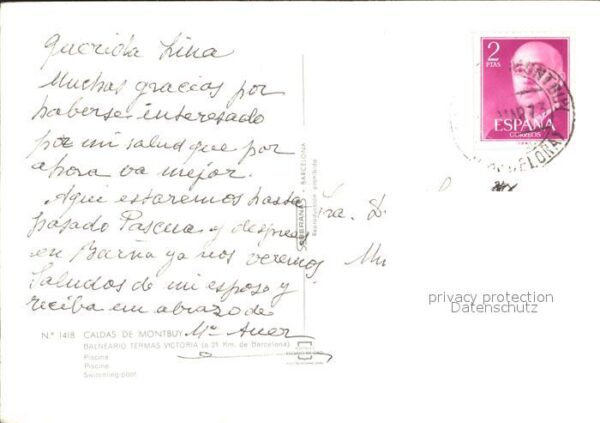 Querida Lina
Muchas gracias por
haberse interesado
por mi salud que por
ahora va mejor.
Aqui estaremos hasta
pasado Pascua y despues
en Barña ya nos veremos.
Saludos de mi esposo y
reciba un abrazo de
Mª Auer
Nª 1418 CALDAS DE MONTBUY
BALNEARIO TERMAS VICTORIA (a 21 Km. de Barcelona)
Piscina
Piscine
Swimming-pool
BARCELONA
Reproducción prohibida
2
PTAS
ESPAÑA
CORREOS
Sra. D
privacy protection
Datenschutz